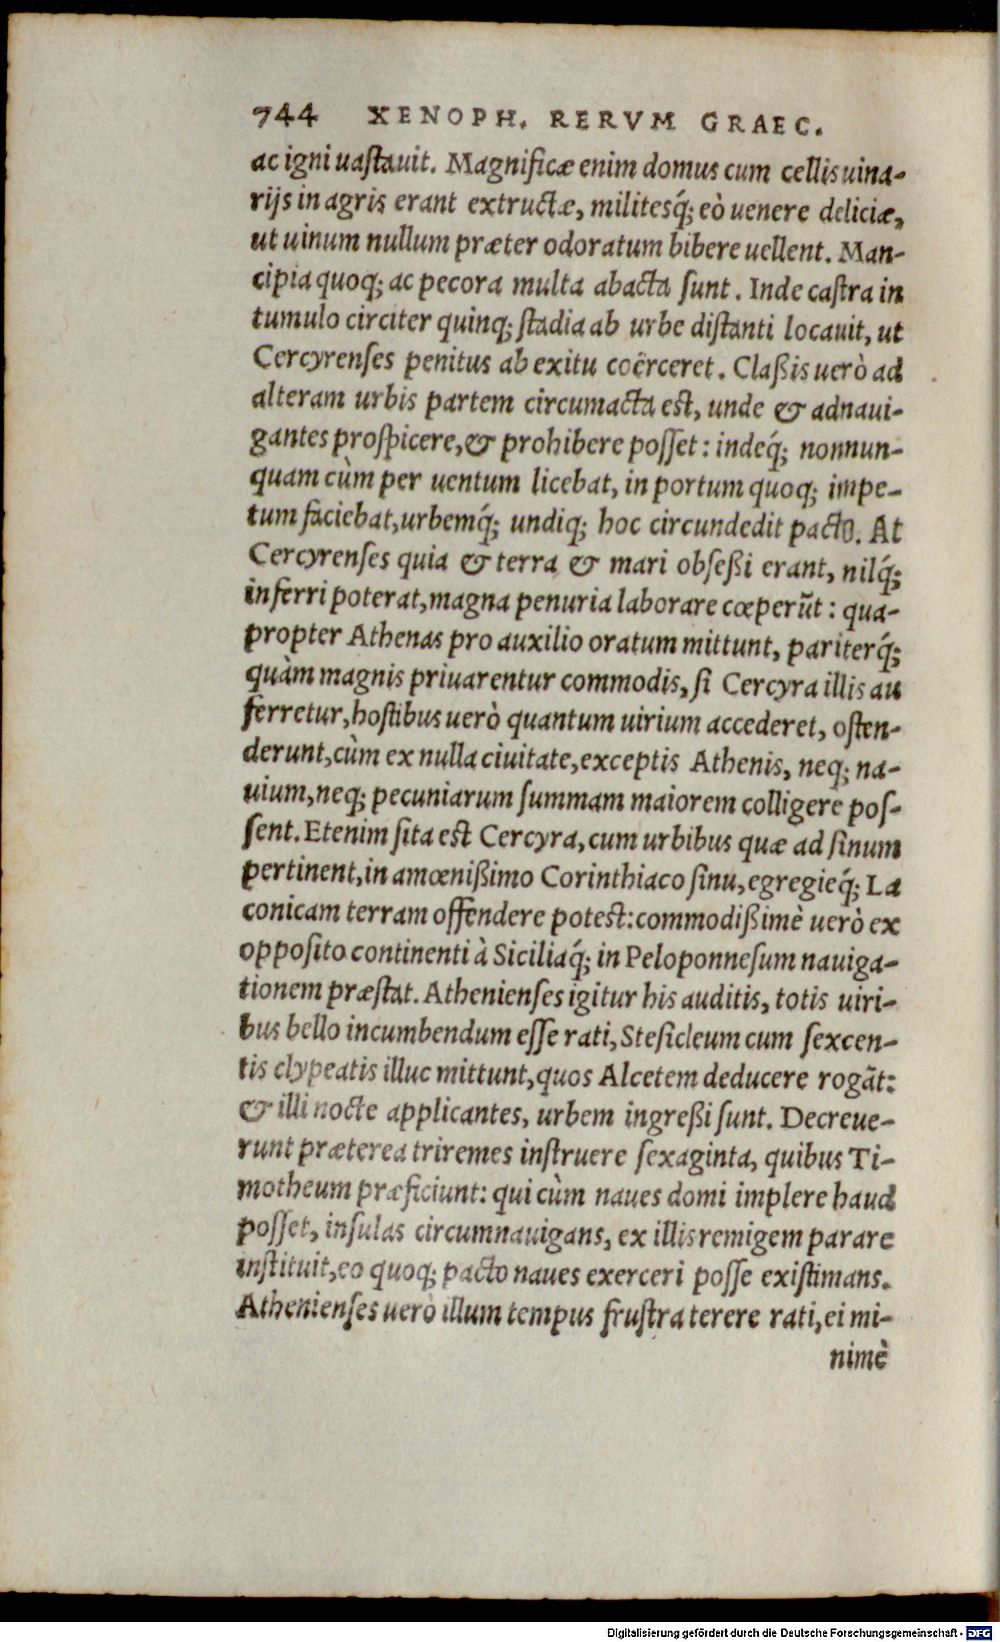 744 XENOPH. RERVM GRAEC.
ac igni uaſtauit. Magnificæ enim domus cum cellis uina-
rijs in agris erant extructæ, militesq́; eò uenere deliciæ,
ut uinum nullum præter odoratum bibere uellent. Man-
cipia quoq; ac pecora multa abacta ſunt. Inde caſtra in
tumulo circiter quinq; ſtadia ab urbe diſtanti locauit, ut
Cercyrenſes penitus ab exitu coërceret. Claßis uerò ad
alteram urbis partem circumacta eſt, unde & adnaui-
gantes proſpicere, & prohibere poſſet: indeq́; nonnun-
quam cùm per uentum licebat, in portum quoq; impe-
tum faciebat, urbemq́; undiq; hoc circundedit pacto. At
Cercyrenſes quia & terra & mari obſeßi erant, nilq́;
inferri poterat, magna penuria laborare cœperũt: qua-
propter Athenas pro auxilio oratum mittunt, pariterq́;
quàm magnis priuarentur commodis, ſi Cercyra illis au
ferretur, hoſtibus uerò quantum uirium accederet, oſten-
derunt, cùm ex nulla ciuitate, exceptis Athenis, neq; na-
uium, neq; pecuniarum ſummam maiorem colligere poſ-
ſent. Etenim ſita eſt Cercyra, cum urbibus quæ ad ſinum
pertinent, in amœnißimo Corinthiaco ſinu, egregieq́; La
conicam terram offendere poteſt: commodißimè uerò ex
oppoſito continenti à Siciliaq́; in Peloponneſum nauiga-
tionem præſtat. Athenienſes igitur his auditis, totis uiri-
bus bello incumbendum eſſe rati, Steſicleum cum ſexcen-
tis clypeatis illuc mittunt, quos Alcetem deducere rogãt:
& illi nocte applicantes, urbem ingreßi ſunt. Decreue-
runt præterea triremes inſtruere ſexaginta, quibus Ti-
motheum præficiunt: qui cùm naues domi implere haud
poſſet, inſulas circumnauigans, ex illis remigem parare
inſtituit, eo quoq; pacto naues exerceri poſſe exiſtimans.
Athenienſes uerò illum tempus fruſtra terere rati, ei mi-
nimè
Digitalisierung gefördert durch die Deutsche Forschungsgemeinschaft - DFG